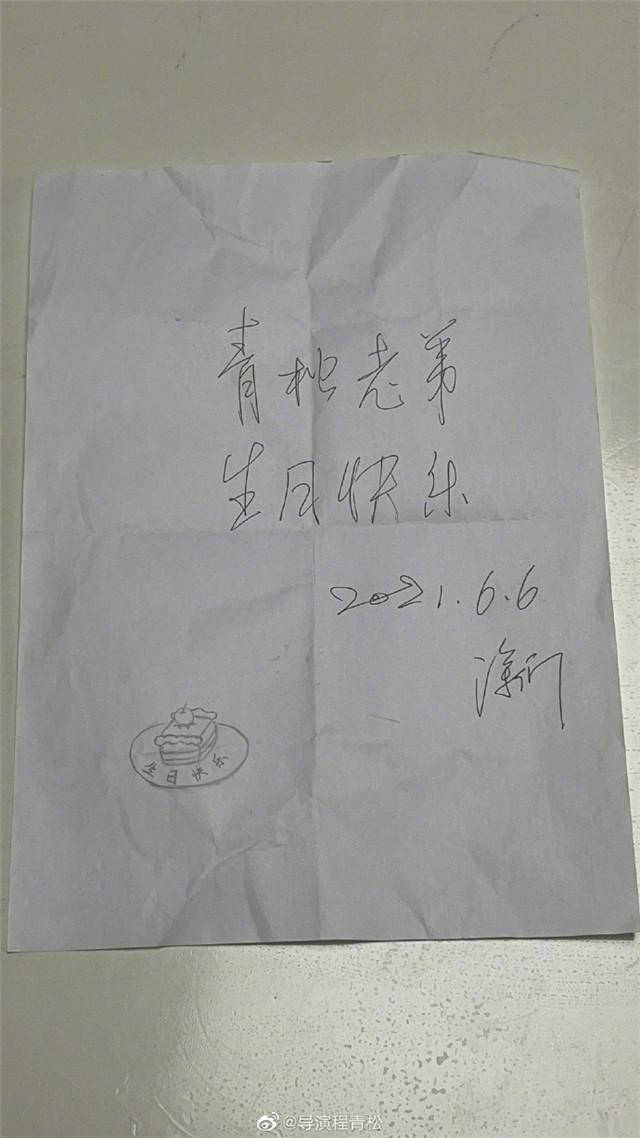 青松老弟
生日快乐
2021.6.6
生日快乐
@导演程青松